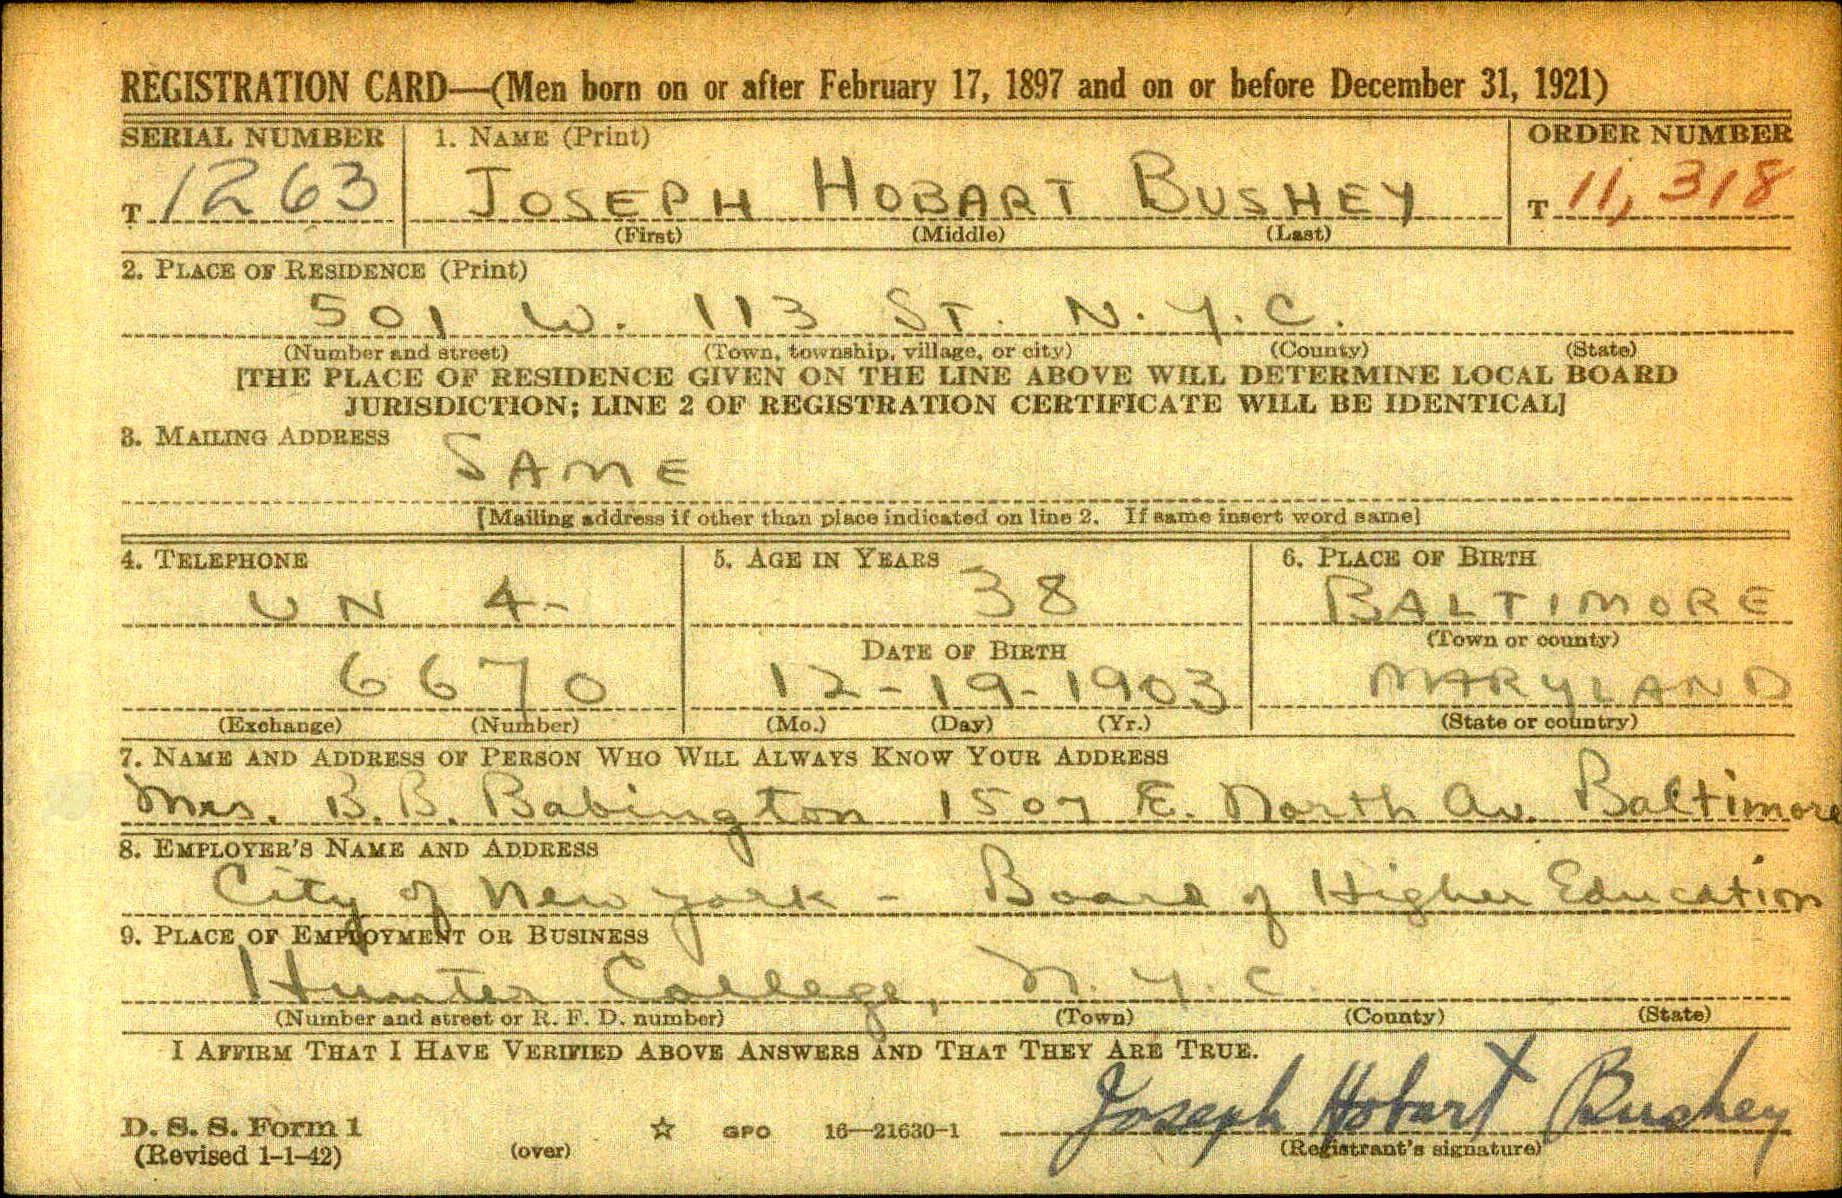 REGISTRATION CARD—(Men born on or after February 17, 1897 and on or before December 31, 1921)
SERIAL NUMBER 1. NAME (Print) ORDER NUMBER
T 1263 JOSEPH HOBART BUSHEY T 11,318
(First) (Middle) (Last)
2. PLACE OF RESIDENCE (Print)
501 W. 113 ST. N.Y.C.
(Number and street) (Town, township, village, or city) (County) (State)
[THE PLACE OF RESIDENCE GIVEN ON THE LINE ABOVE WILL DETERMINE LOCAL BOARD
JURISDICTION; LINE 2 OF REGISTRATION CERTIFICATE WILL BE IDENTICAL]
3. MAILING ADDRESS
SAME
[Mailing address if other than place indicated on line 2. If same insert word same]
4. TELEPHONE 5. AGE IN YEARS 6. PLACE OF BIRTH
UN 4- 38 BALTIMORE
DATE OF BIRTH (Town or county)
6670 12-19-1903 MARYLAND
(Exchange) (Number) (Mo.) (Day) (Yr.) (State or country)
7. NAME AND ADDRESS OF PERSON WHO WILL ALWAYS KNOW YOUR ADDRESS
Mrs. B.B. Babington 1507 E. North Av. Baltimore
8. EMPLOYER'S NAME AND ADDRESS
City of New York - Board of Higher Education
9. PLACE OF EMPLOYMENT OR BUSINESS
Hunter College, N.Y.C.
(Number and street or R. F. D. number) (Town) (County) (State)
I AFFIRM THAT I HAVE VERIFIED ABOVE ANSWERS AND THAT THEY ARE TRUE.
Joseph Hobart Bushey
D. S. S. Form 1 GPO 16—21630-1
(Revised 1-1-42) (over) (Registrant's signature)